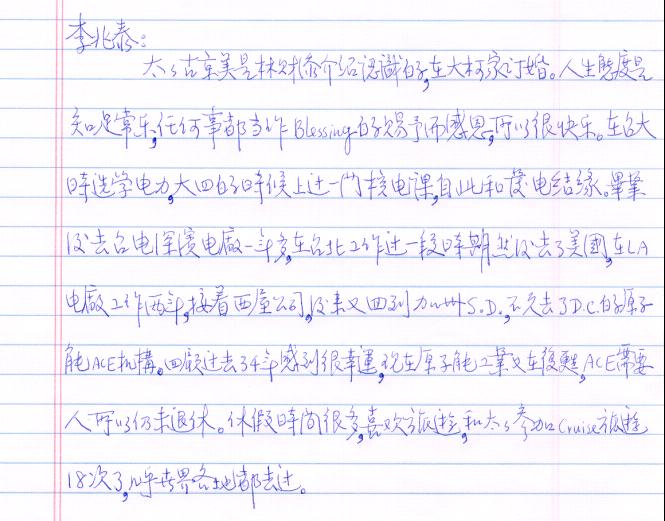 李兆泰:
太太古京美是林財添介紹認識的,在大柯家订婚。人生態度是
知足常乐,任何事都当作Blessing的赐予而感恩,所以很快乐。在台大
時选学电力,大四的時候上过一门核电課,自此和發电結缘。畢業
后去台电深澳电廠一年多,在台北工作过一段時期,然后去了美國,在LA
电廠工作两年,接着西屋公司,后来又回到加州S.D.,不久去了D.C.的原子
能ACE机構。回顧过去34年感到很幸運,現在原子能工業又在復甦,ACE需要
人所以仍未退休。休假時间很多,喜欢旅遊,和太太参加Cruise旅遊
18次了,几乎世界各地都去过。